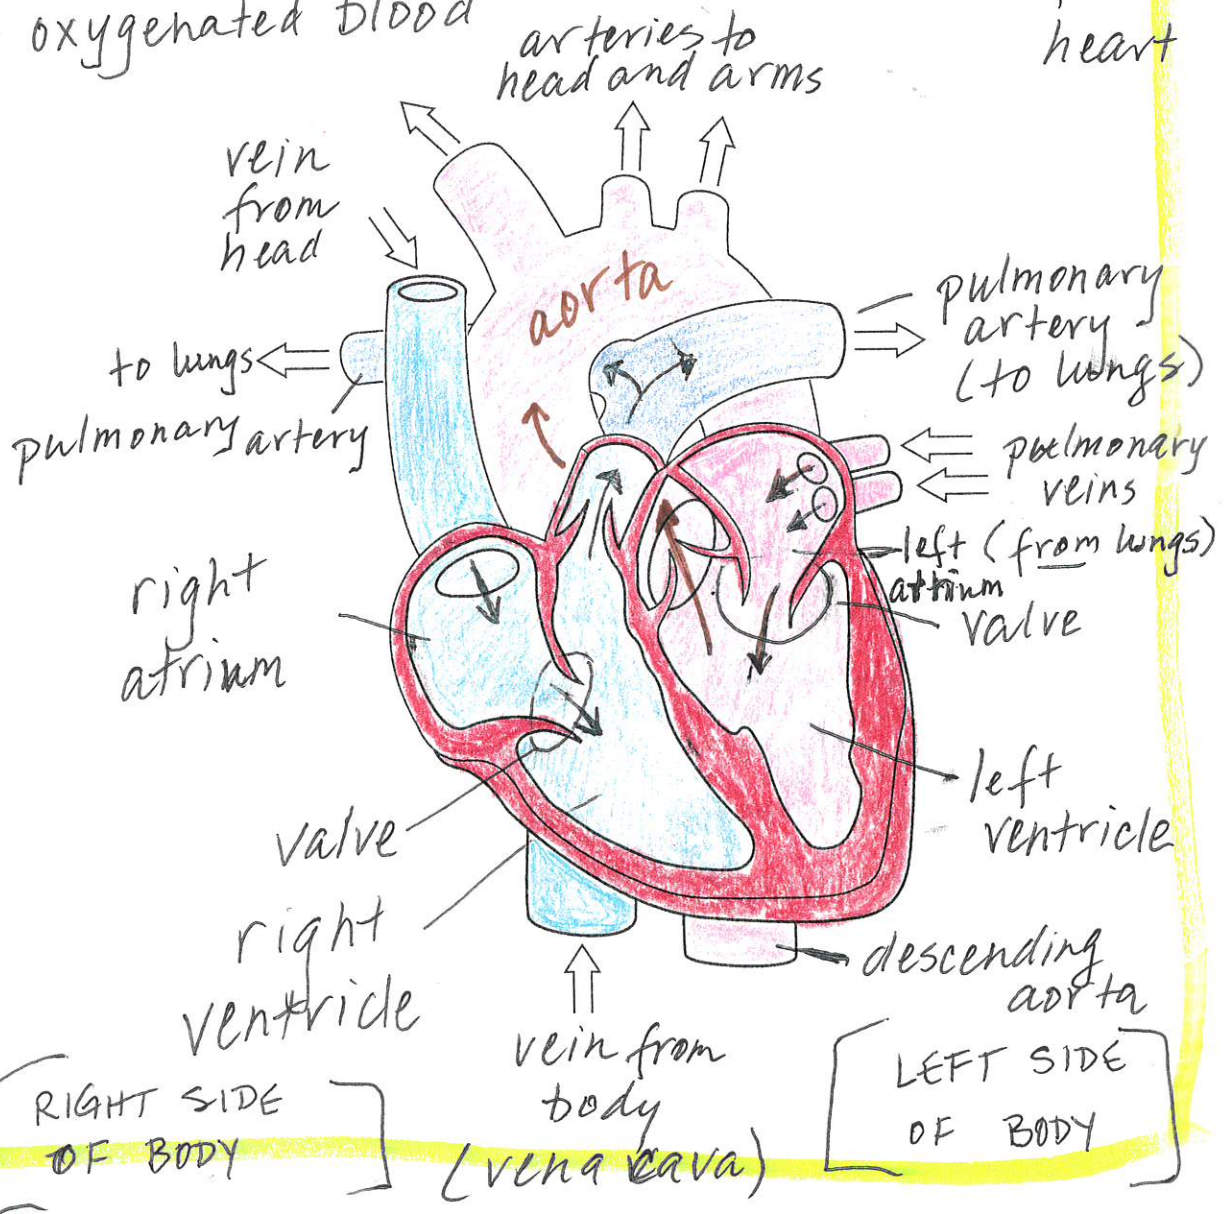 oxygenated blood
heart
arteries to
head and arms
vein
from
head
aorta
pulmonary
artery
(to lungs)
to lungs
pulmonary artery
pulmonary
veins
(from lungs)
left
atrium
valve
right
atrium
left
ventricle
valve
right
ventricle
descending
aorta
vein from
body
(vena cava)
RIGHT SIDE
OF BODY
LEFT SIDE
OF BODY